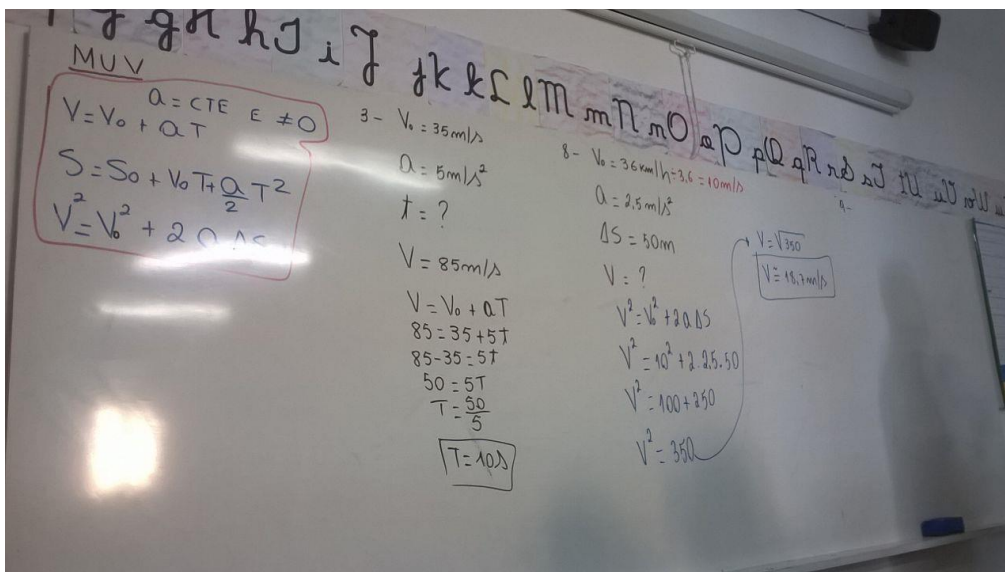 g H h I i J j K k L l M m N n O o P p Q q R r S s T t U u V v W
MUV
a = CTE E ≠ 0
V = V₀ + aT
S = S₀ + V₀T + a/2 T²
V² = V₀² + 2 a ΔS
3 - V₀ = 35m/s
a = 5m/s²
t = ?
V = 85m/s
V = V₀ + aT
85 = 35 + 5t
85 - 35 = 5t
50 = 5T
T = 50/5
T = 10s
8 - V₀ = 36km/h ÷ 3,6 = 10m/s
a = 2,5m/s²
ΔS = 50m
V = ?
V² = V₀² + 2aΔS
V² = 10² + 2 . 2,5 . 50
V² = 100 + 250
V² = 350
V = √350
V = 18,7m/s
9 -